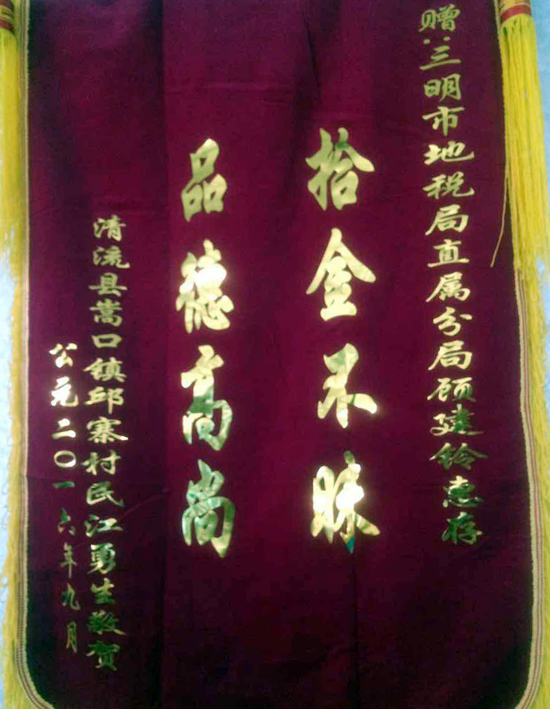 赠:三明市地税局直属分局顾建铃惠存
拾金不昧
品德高尚
清流县嵩口镇邱寨村民江勇生敬贺
公元二〇一六年九月